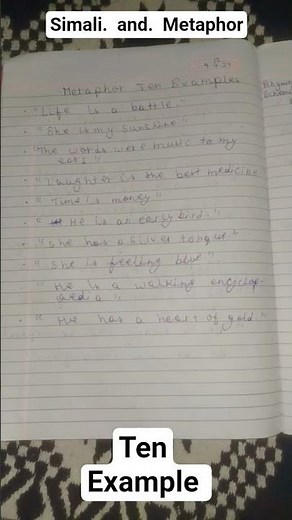 Simali. and. Metaphor
Metaphor Ten Examples
"Life is a battle"
"She is my sunshine"
"The words were music to my
ears"
"Laughter is the best medicine
"Time is money"
" He is an early bird."
"She has a silver tongue"
"She is feeling blue"
" He is a walking encyclop-
" He has a heart of gold."
Ten
Example